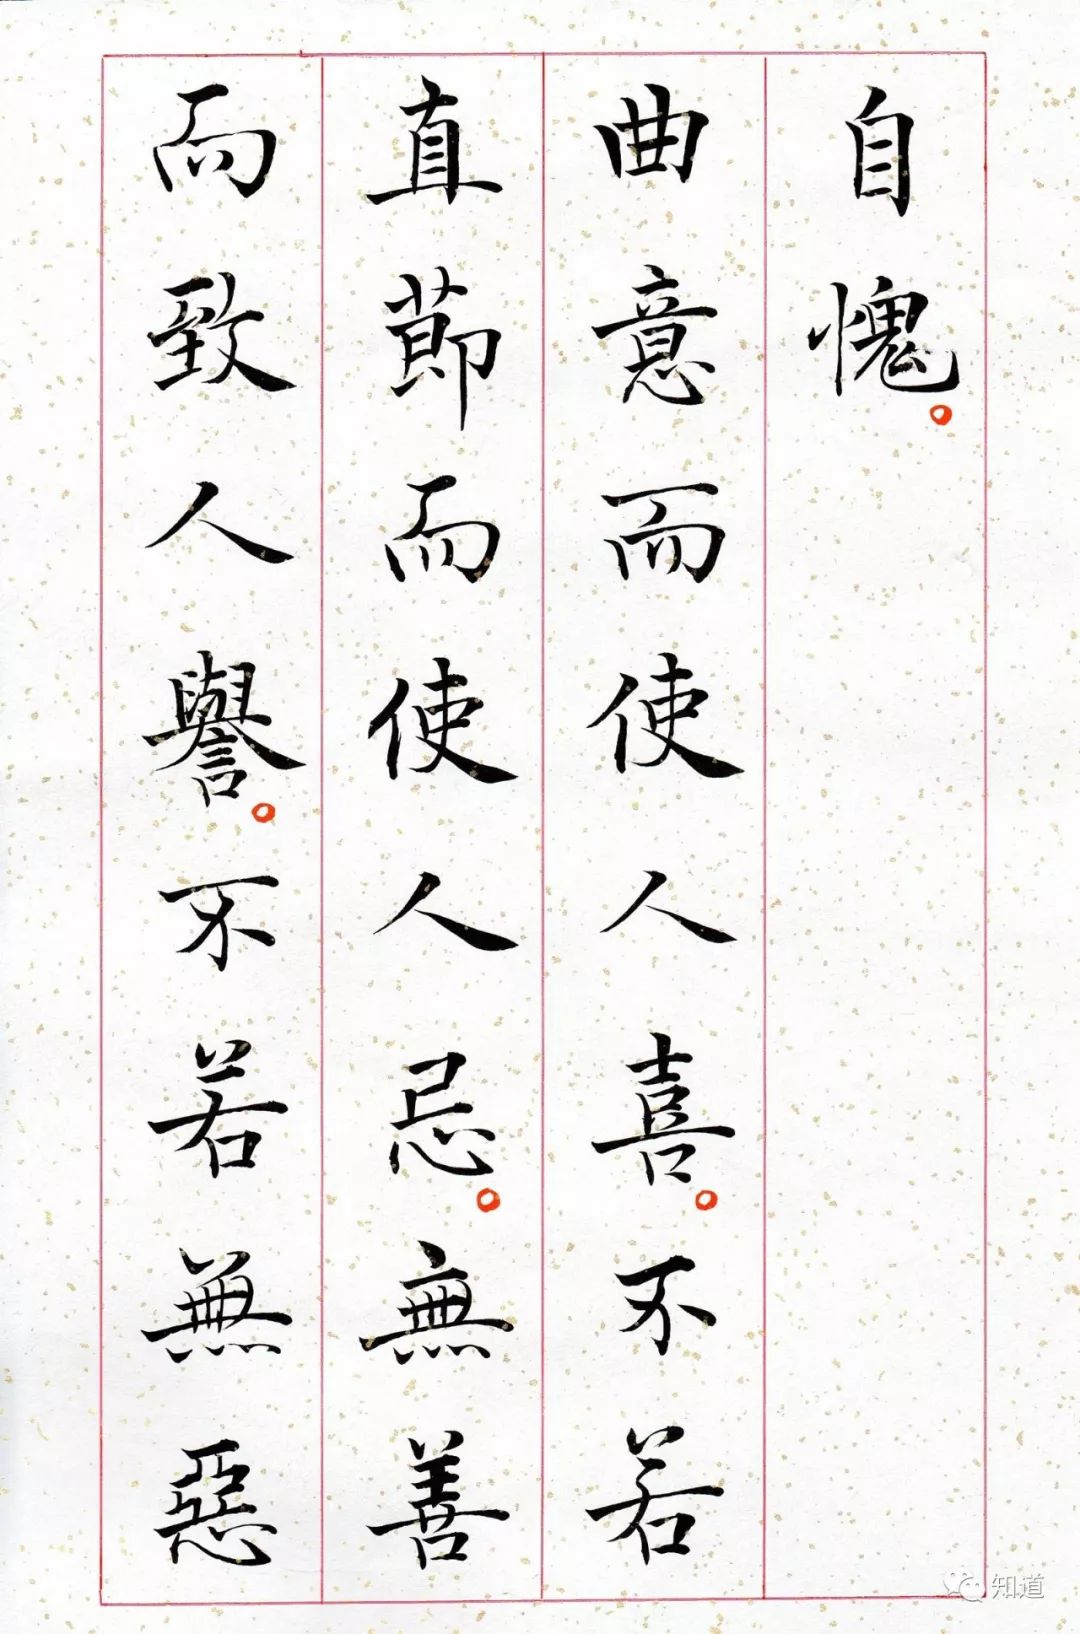 自愧。
曲意而使人喜。不若
直節而使人忌。無善
而致人譽。不若無惡
知道